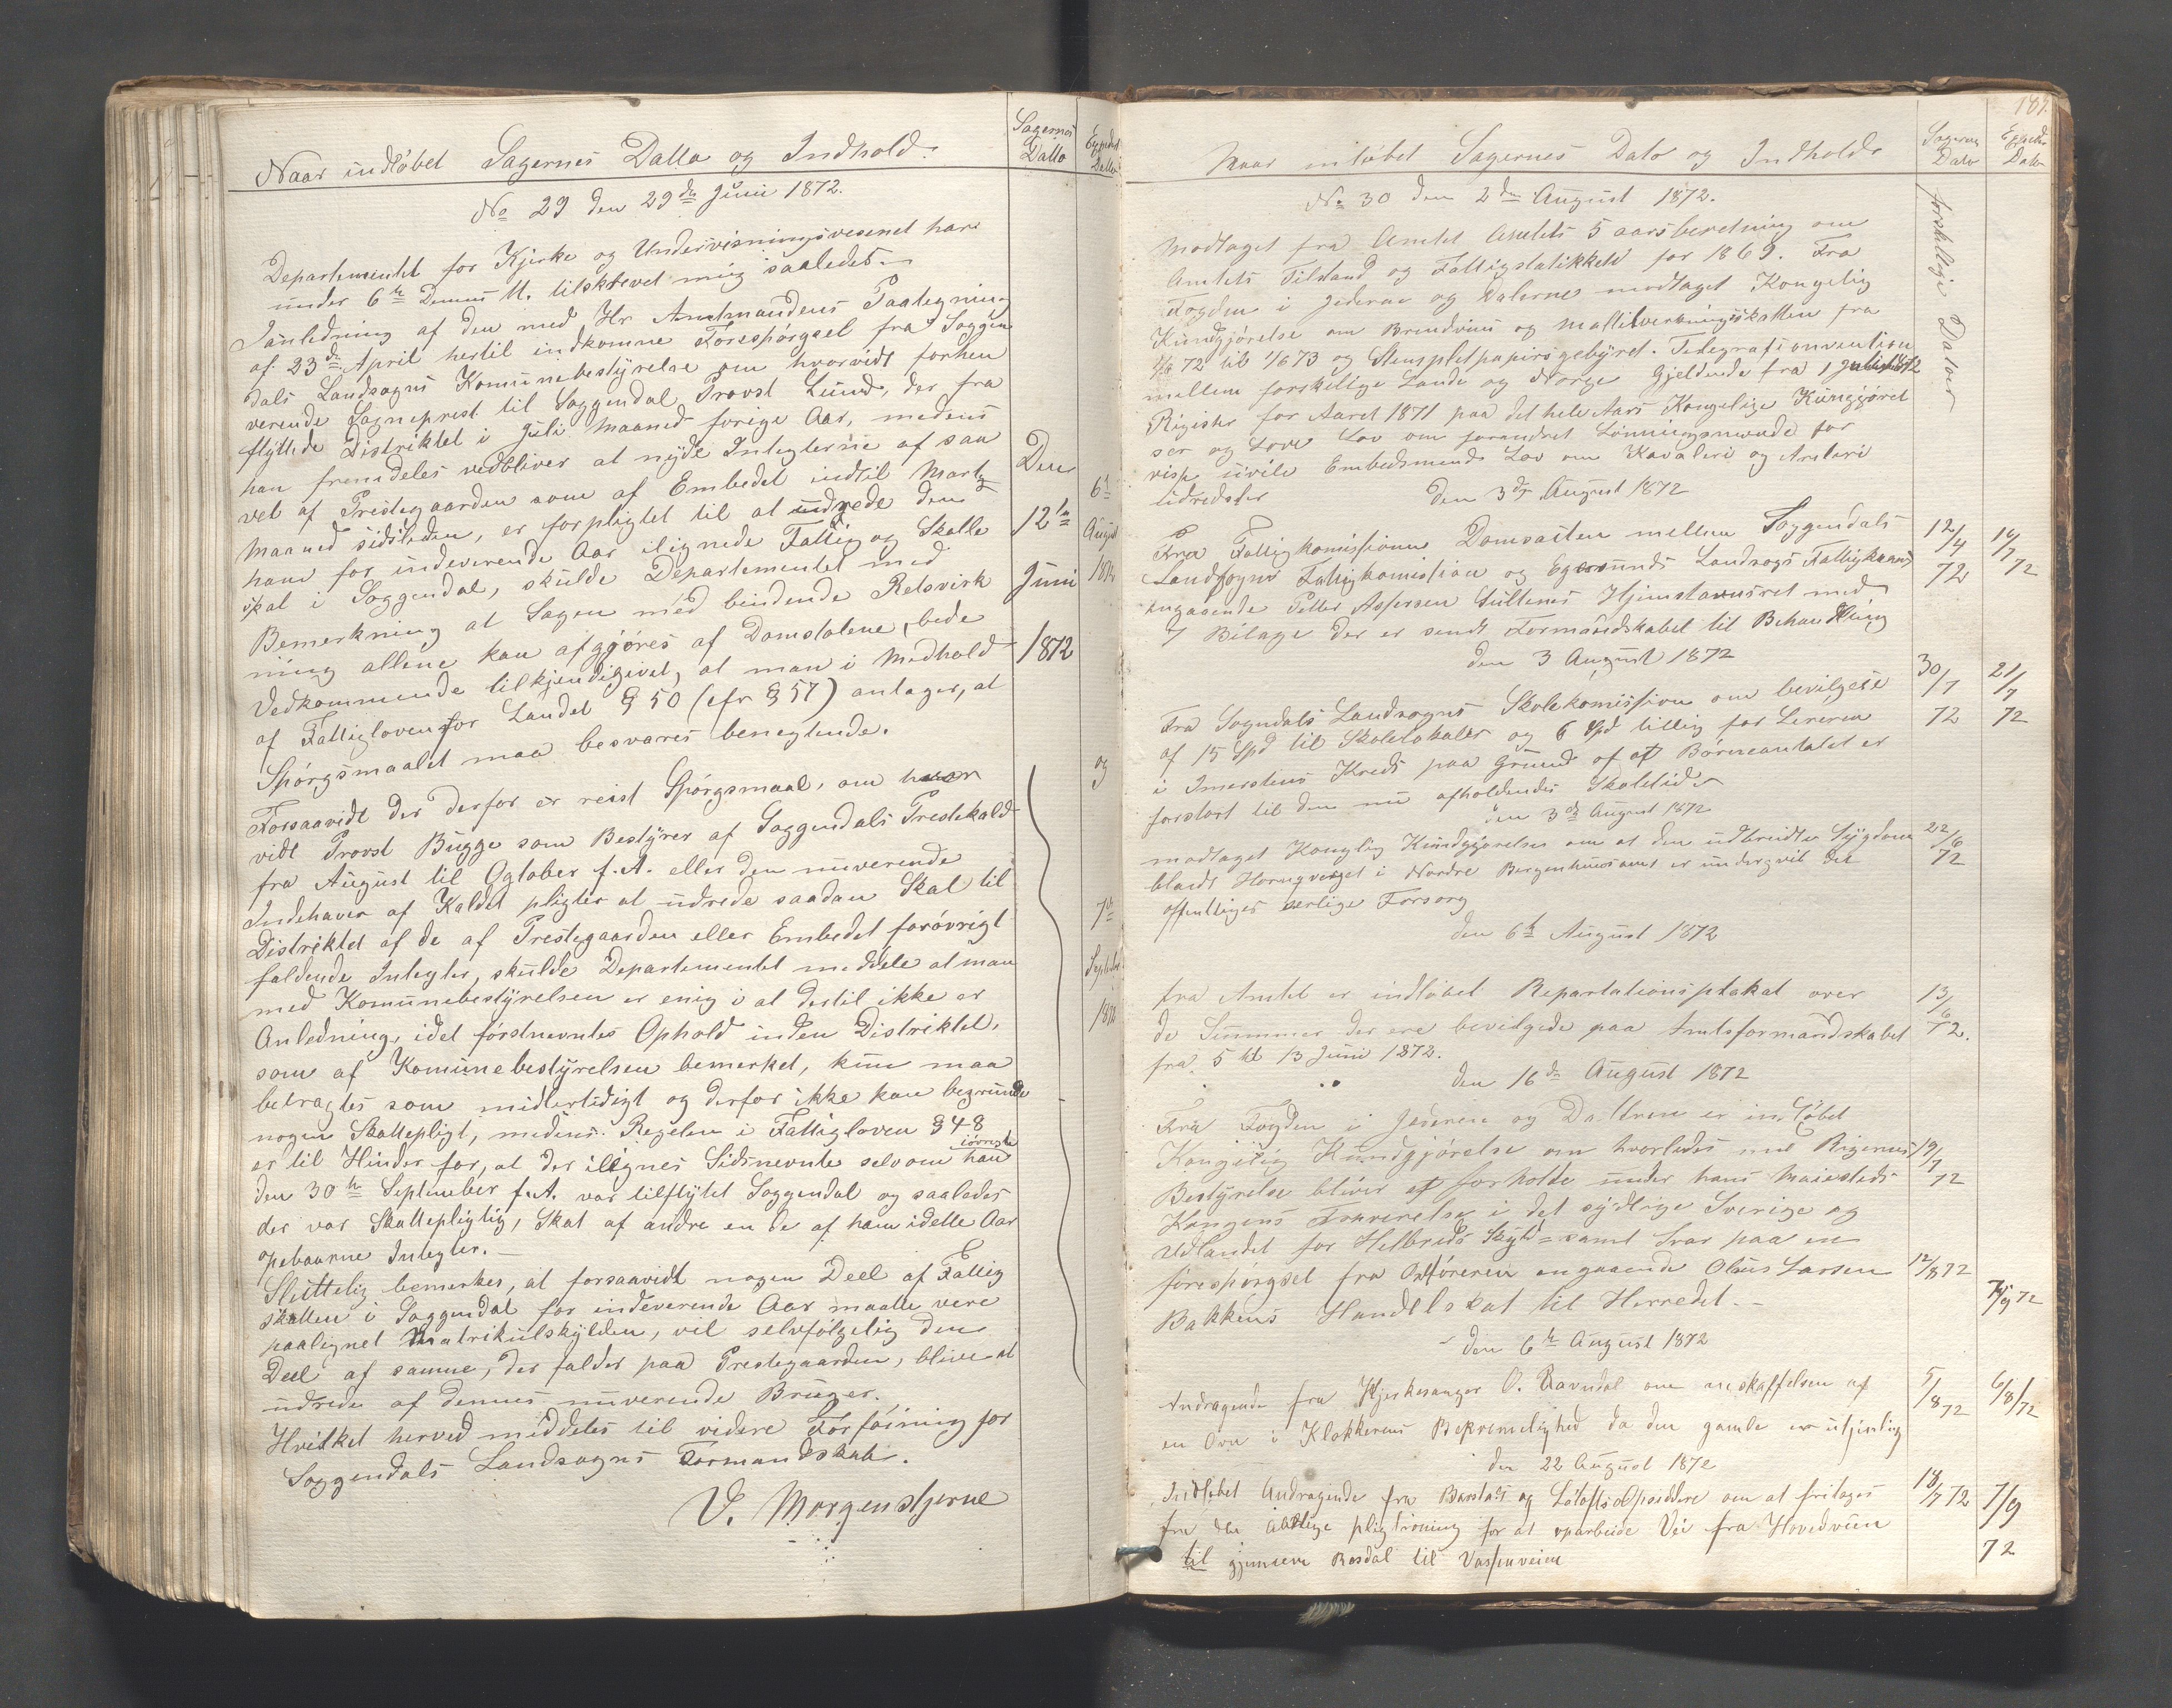 Naar indløbet Sagernes Datto og Indhold.
Sagernes Datto
Expedit Datto
No 29 den 29de Juni 1872.
Departementet for Kjirke og Undervisningsvesenet har
under 6te Dennes M. tilskrevet mig saaledes.
Ianledning af den med Hr Amtmandens Paategning
af 23de April hertil indkomne Forespørgsel fra Soggen
dals Landsogns Komunebestyrelse om hvorvidt forhen
verende Sogneprest til Soggendal Provst Lund, der fra
flyttede Distriktet i Juli Maaned forige Aar, medens
han fremdeles vedbliver at nyde Integterne af saa
vel af Prestegaarden som af Embedet indtil Marts
Maaned sidsleden, er forpligtet til at udrede den
ham for indeverende Aar ilignede Fattig og Skolle
skat i Soggendal, skulde Departementet med
Bemerkning at Sagen med bindende Retsvirk
ning allene kan afgjøres af Domstolene, bede
Vedkommende tilkjendegivet, at man i Medhold
af Fattigloven for Landet § 50 (cfr § 57) antager, at
Spørgsmaalet maa besvares benegtende.
Forsaavidt der derfor er reist Spørgsmaal, om hvor
vidt Provst Bugge som Bestyrer af Soggendals Prestekald
fra August til Ogtober f. A. eller den nuverende
Indehaver af Kaldet pligter at udrede saadan Skat til
Distriktet af de af Prestegaarden eller Embedet forøvrigt
faldende Integter, skulde Departementet meddele at man
med Komunebestyrelsen er enig i at dertil ikke er
Anledning, idet førstnevntes Ophold inden Distriktet,
som af Komunebestyrelsen bemerket, kun maa
betragtes som midlertidigt og derfor ikke kan begrunde
nogen Skattepligt, medens Regelen i Fattigloven § 48
er til Hinder for, at der ilignes Sidsnevnte selvom han iøvrigt
den 30te September f. A. var tilflytet Soggendal og saaledes
der var Skattepligtig, Skat af andre en de af ham idette Aar
opebaarne Integter.
Sluttelig bemerkes, at forsaavidt nogen Deel af Fattig
skatten i Soggendal for indeverende Aar maatte vere
paalignet Matrikulskylden, vil selvfølgelig den
Deel af samme, der falder paa Prestegaarden, blive at
udrede af dennes nuverende Bruger.
Hvilket herved meddeles til videre Forføining for
Soggendals Landsogns Formandskab.
V. Morgenstjerne
Den
12te
Juni
1872
6te
August
1872
og
7de
September
1872
187.
Naar inløbet Sagernes Dato og Indhold
Sagernes Dato
Expedit Dato
No 30 den 2den August 1872.
Modtaget fra Amtet Amtets 5 aarsberetning om
Amtets Tilstand og Fattigstatikken for 1869. Fra
Fogden i Jederen og Dalerne modtaget Kongelig
Kundgjørelse om Brendevins og Maltilverkningsskatten fra
1/6 72 til 1/6 73 og Stempletpapirsgebyret. Telegrafconvention
mellem forskelige Lande og Norge Gjeldende fra 1 Juli 1872
Register for Aaret 1871 paa det hele Aars Kongelige Kungjørel
ser og Love Lov om forandret Lønningsmaade for
visse civile Embedsmend Lov om Kavaleri og Artleri
udredster
forskellige Datoer
den 3de August 1872
Fra Fattigkomissionen Domsacten mellem Soggendals
Landsogns Fattigkomission og Egersunds Landsogs Fattigkomis
angaaende Petter Assersen Hjemstavnsret med
7 Bilage der er sendt Formandskabet til Behandling
12/4 72
19/7 72
den 3 August 1872
Fra Sogndals Landsogns Skolekomission om bevilgelse
af 15 Spd til Skolelokaler og 6 Spd tillig for Lereren
i Kreds paa Grund af at Børneantalet er
forstort til den nu afholdendes Skoletid
30/7 72
21/7 72
den 3de August 1872
modtaget Konglig Kundgjørelse om at den udbreidte Sygdom
blandt Hornqveget i Nordre Bergenhusamt er undergivet det
offentliges serlige Forsorg
22/6 72
den 6te August 1872
fra Amtet er indløbet Repartationsplakat over
de Summer der ere bevilgede paa Amtsformandskabet
fra 5 til 13 Juni 1872.
13/6 72.
den 16de August 1872
Fra Fogden i Jederen og Dalleren er indløbet
Kongelig Kundgjørelse om hvorledes med Rigernes
Bestyrelse bliver at forholde under hans Maiesteds
Kongens Fraverelse i det sydlige Sverige og
Udlandet for Helbreds Skyld - samt Svar paa en
forespørgsel fra Ordføreren angaaende Olaus Larsen
Bakkens Handelskat til Herredet.
19/7 72
12/8 72
7/9 72
den 6te August 1872
Andragende fra Kjerkesanger O. Ravndal om anskaffelsen af
en Ovn i Klokkerens Bekvemelighed da den gamle er utjenlig
5/8 72
6/8 72
den 22 August 1872
Indløbet Andragende fra Barstads og Løtofts Opsiddere om at fritages
fra den plig for at oparbeide Vei fra Hovedveien
til gjennem Rosdal til Vassenveien
18/7 72
7/9 72